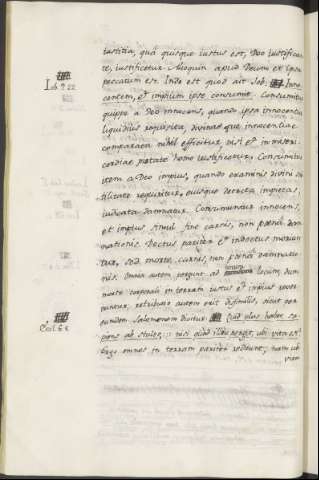 iustitia, qua quisque iustus est, Deo iustifican
te, iustificetur. Alioquin apud Deum et ipsa
peccatum est. Inde est quod ait Job. Inno
Job 9. 22
centem, et impium ipse consumit. Consumitur
quippe a Deo innocens, quando ipsa innocentia
liquidius requisita, divinae que innocentiae
comparata nihil efficitur, nisi et in miseri
cordiae pietate homo iustificetur. Consumitur
item a Deo impius, quando examinis divini su
tilitate requiritur, eiusque detecta impietas,
iudicata damnatur. Consumuntur innocens,
et impius simul fine carnis, non poena dam
nationis. Doctus pariter et indoctus moriun
tur, sed morte carnis, non poena damnatio
nis. Omnia autem pergunt ad unum locum, dum
morte corporali in terram iustus et impius rever
tuntur, retributio autem erit dissimilis, sicut per
eundem Salomonem dicitur: Quid plus habet sa
piens ab stulto, nisi quod illuc pergit, ubi vita est?
Eccl. 6. 8
ergo omnes in terram pariter redeunt, nam ubi
vitam